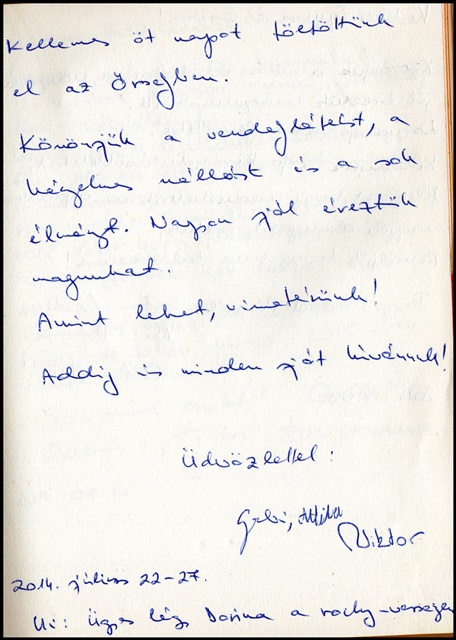 Kellemes öt napot töltöttünk
el az Őrségben.
Köszönjük a vendéglátást, a
kényelmes szállást és a sok
élményt. Nagyon jól éreztük
magunkat.
Amint lehet, visszatérünk!
Addig is minden jót kívánunk!
Üdvözlettel:
Gabi, Attila
Viktor
2014. július 22-27.
Ui: Ügyes légy Dorina a rocky-versenyen